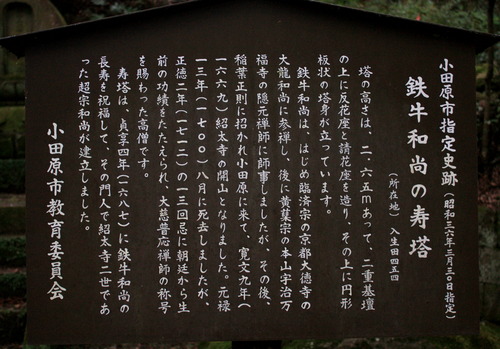 小田原市指定史跡(昭和三六年三月三〇日指定)
鉄牛和尚の寿塔
(所在地) 入生田四五四
塔の高さは、二・六五mあって、二重基壇
の上に反花座と請花座を造り、その上に円形
板状の塔身が立っています。
鉄牛和尚は、はじめ臨済宗の京都大徳寺の
大龍和尚に参禅し、後に黄蘗宗の本山宇治万
福寺の隠元禅師に師事しましたが、その後、
稲葉正則に招かれ小田原に来て、寛文九年(
一六六九)紹太寺の開山となりました。元禄
一三年(一七〇〇)八月に死去しましたが、
正徳二年(一七一二)の一三回忌に朝廷から生
前の功績をたたえられ、大慈普応禅師の称号
を賜わった高僧です。
寿塔は、貞享四年(一六八七)に鉄牛和尚の
長寿を祝福して、その門人で紹太寺二世であ
った超宗和尚が建立しました。
小田原市教育委員会